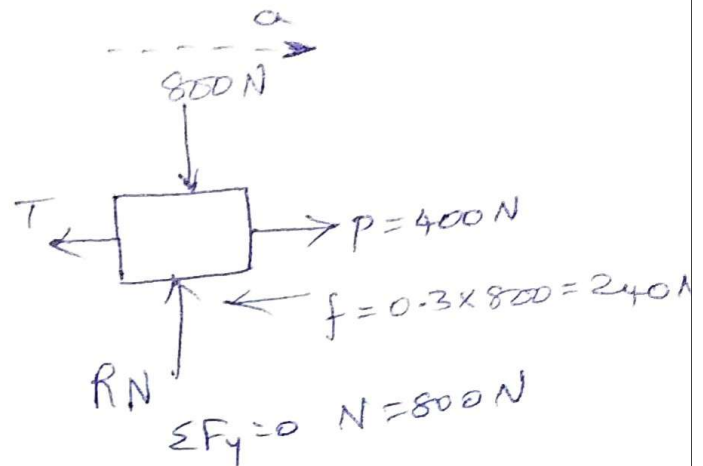 a
800 N
T
P = 400 N
f = 0.3 x 800 = 240 N
RN
ΣFy = 0 N = 800 N